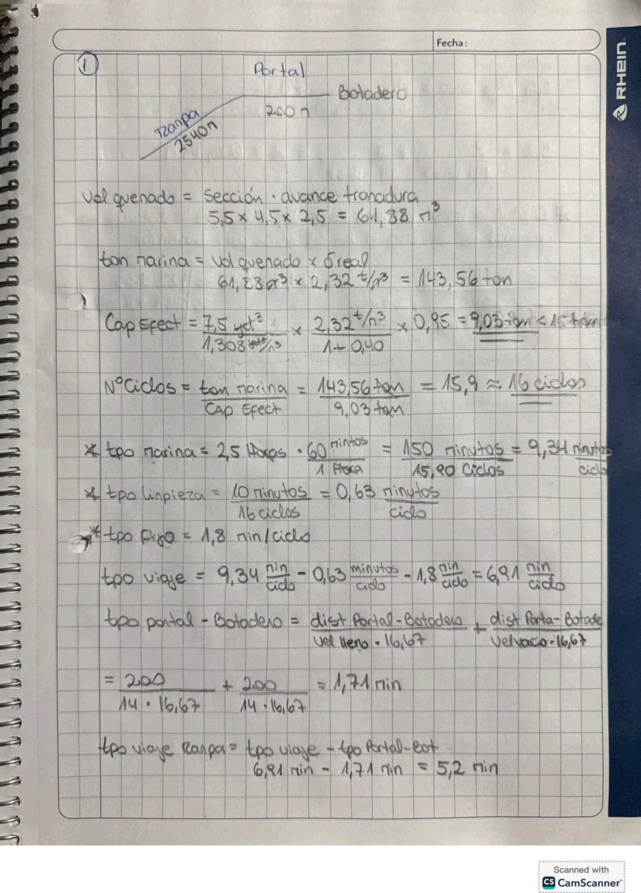 Fecha:
RHEIN
1
Portal
Botadero
200 m
Rampa
2540 m
Vol quemado = sección · avance tronadura
5,5 x 4,5 x 2,5 = 61,88 m³
ton marina = vol quemado x δ real
61,88 m³ x 2,32 t/m³ = 143,56 ton
Cap Efect = 7,5 yd³ / 1,308 yd³/m³ x 2,32 t/m³ / 1 + 0,40 x 0,95 = 9,03 ton < 15 ton
N° Ciclos = ton marina / Cap Efect = 143,56 ton / 9,03 ton = 15,9 ≈ 16 ciclos
* tpo marina = 2,5 Horas · 60 mintos / 1 Hora = 150 minutos / 15,90 Ciclos = 9,34 minutos / ciclo
* tpo limpieza = 10 minutos / 16 ciclos = 0,63 minutos / ciclo
* tpo fijo = 1,8 min/ciclo
tpo viaje = 9,34 min / ciclo - 0,63 minutos / ciclo - 1,8 min / ciclo = 6,91 min / ciclo
tpo portal - Botadero = dist Portal-Botadero / vel lleno · 16,67 + dist Porta-Botade / vel vacio · 16,67
= 200 / 14 · 16,67 + 200 / 14 · 16,67 = 1,71 min
tpo viaje Rampa = tpo viaje - tpo Portal-Bot
6,91 min - 1,71 min = 5,2 min
Scanned with
CS CamScanner